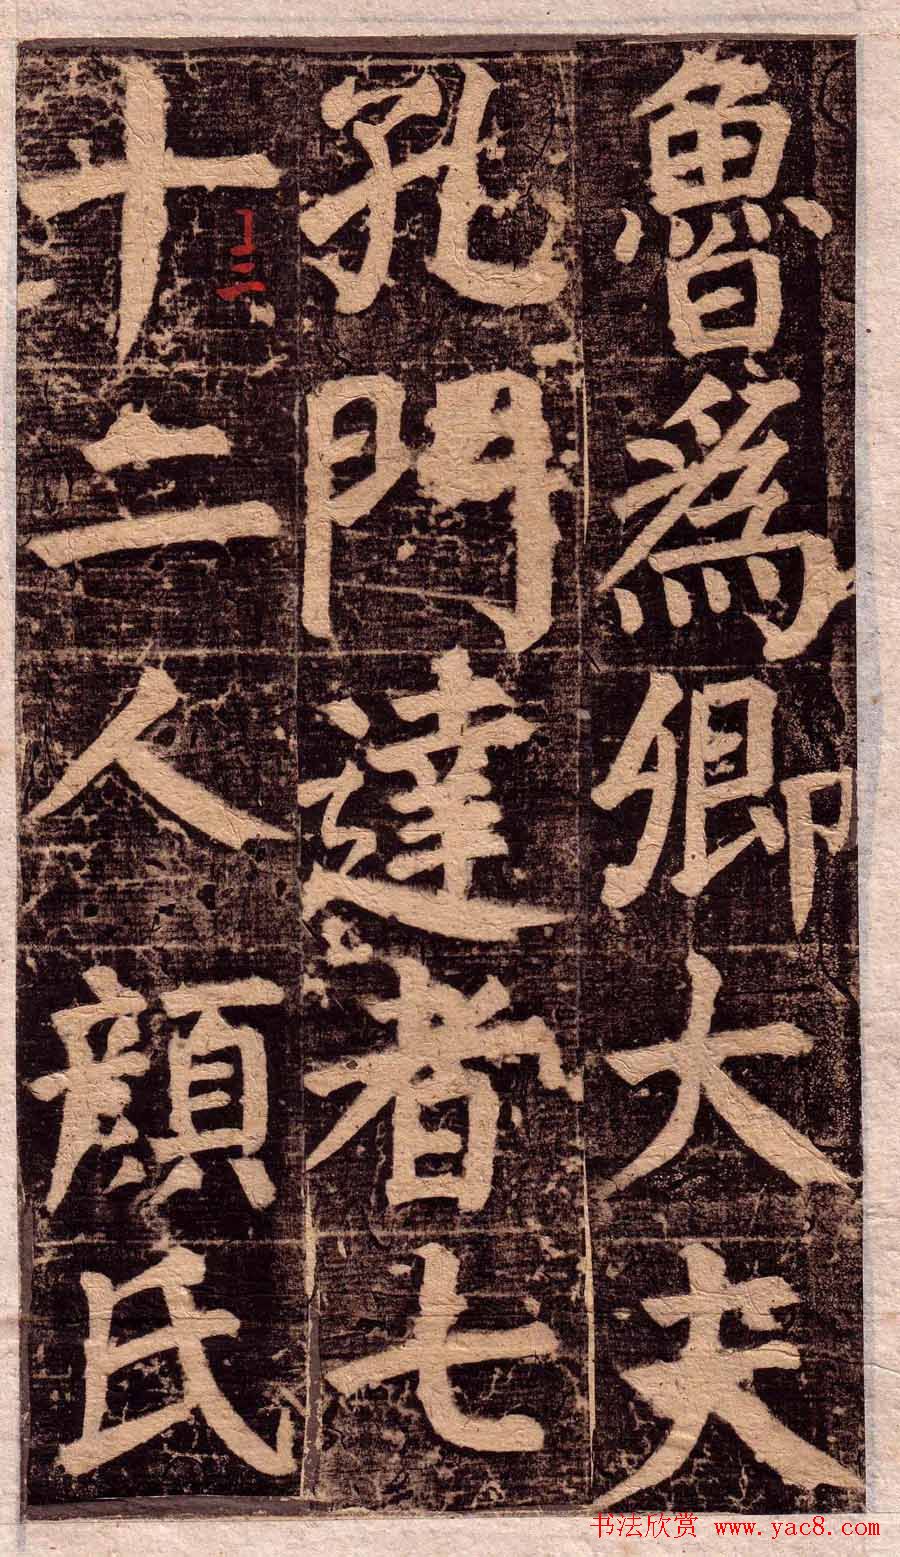 魯爲卿大夫
孔門達者七
十二人顔氏
十三
书法欣赏 www.yac8.com